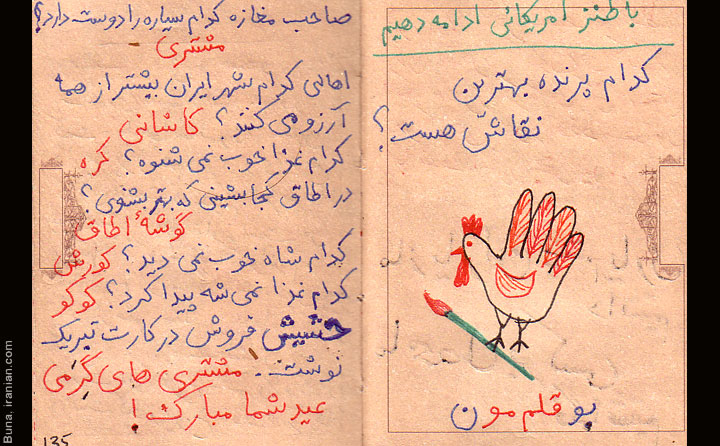 با طنز امریکائی ادامه دهیم
کدام پرنده بهترین
نقاش هست؟
بو قلم مون
صاحب مغازه کدام سیاره را دوست دارد؟
مشتری
اهالی کدام شهر ایران بیشتر از همه
آرزو می کنند؟ کاشانی
کدام غذا خوب نمی شنوه؟ کره
در اطاق کجا بشینی که بهتر بشنوی؟
گوشهٔ اطاق
کدام شاه خوب نمی دید؟ کورش
کدام غذا نمی شه پیدا کرد؟ کوکو
حشیش فروش در کارت تبریک
نوشت. مشتری های گِرَمی
عید شما مبارک!
135
Buna, iranian.com